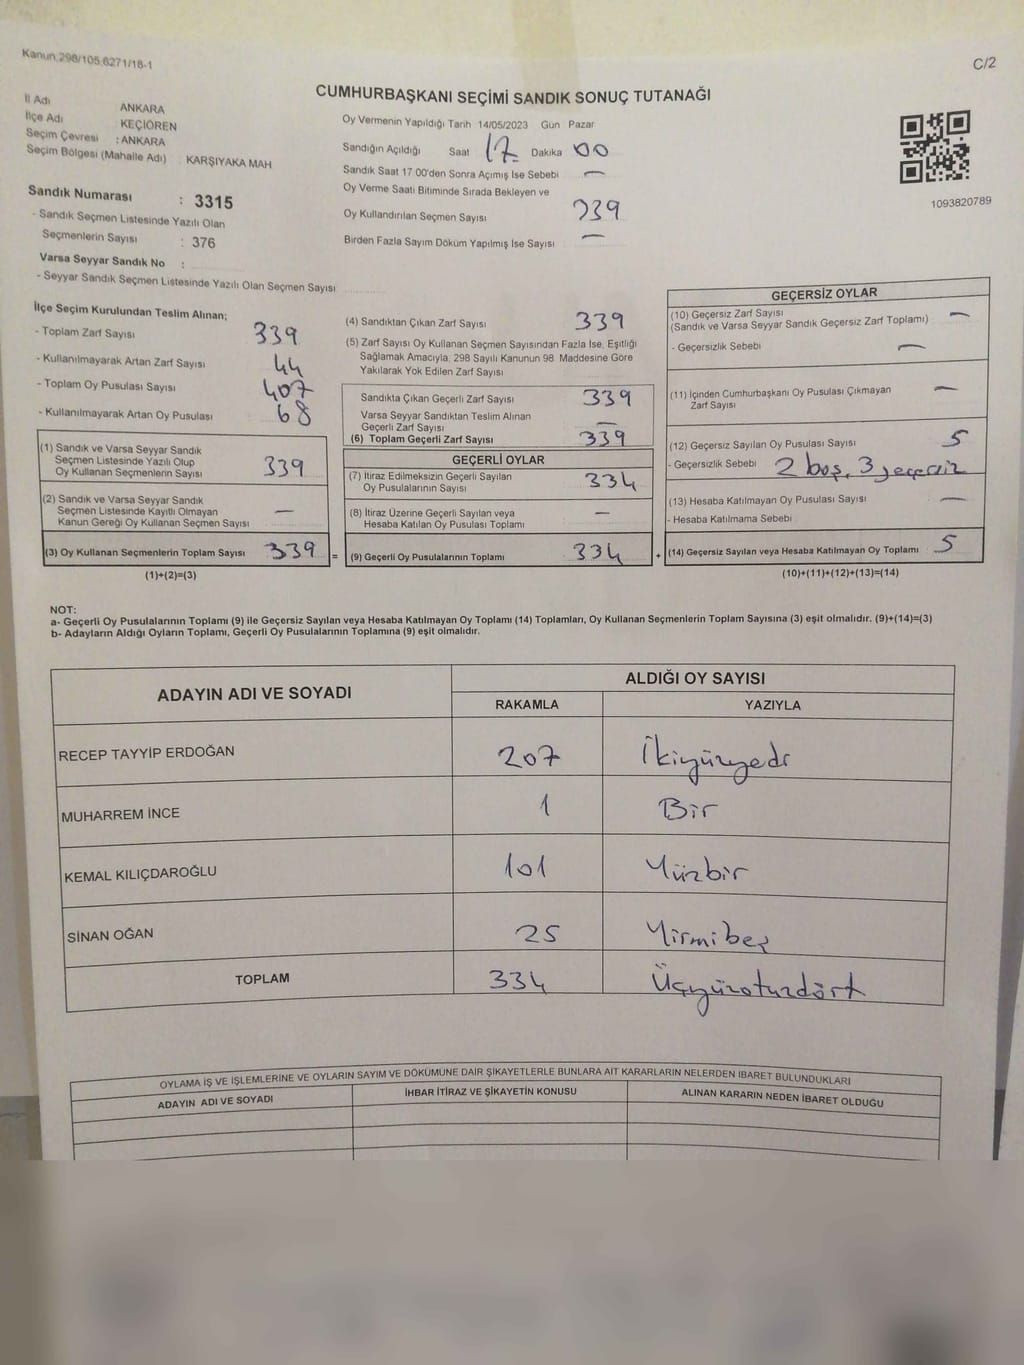 Kanun 298/105.6271/18-1
C/2
CUMHURBAŞKANI SEÇİMİ SANDIK SONUÇ TUTANAĞI
İl Adı ANKARA
İlçe Adı KEÇİÖREN
Seçim Çevresi : ANKARA
Seçim Bölgesi (Mahalle Adı) KARŞIYAKA MAH
Sandık Numarası : 3315
- Sandık Seçmen Listesinde Yazılı Olan
Seçmenlerin Sayısı : 376
Varsa Seyyar Sandık No :
- Seyyar Sandık Seçmen Listesinde Yazılı Olan Seçmen Sayısı
Oy Vermenin Yapıldığı Tarih 14/05/2023 Gün Pazar
Sandığın Açıldığı Saat 17 Dakika 00
Sandık Saat 17 00'den Sonra Açımış İse Sebebi —
Oy Verme Saati Bitiminde Sırada Bekleyen ve
Oy Kullandırılan Seçmen Sayısı 339
Birden Fazla Sayım Döküm Yapılmış İse Sayısı —
1093820789
İlçe Seçim Kurulundan Teslim Alınan;
- Toplam Zarf Sayısı 339
- Kullanılmayarak Artan Zarf Sayısı 44
- Toplam Oy Pusulası Sayısı 407
- Kullanılmayarak Artan Oy Pusulası 68
(1) Sandık ve Varsa Seyyar Sandık
Seçmen Listesinde Yazılı Olup
Oy Kullanan Seçmenlerin Sayısı 339
(2) Sandık ve Varsa Seyyar Sandık
Seçmen Listesinde Kayıtlı Olmayan
Kanun Gereği Oy Kullanan Seçmen Sayısı —
(3) Oy Kullanan Seçmenlerin Toplam Sayısı 339
(1)+(2)=(3)
(4) Sandıktan Çıkan Zarf Sayısı 339
(5) Zarf Sayısı Oy Kullanan Seçmen Sayısından Fazla İse, Eşitliği
Sağlamak Amacıyla, 298 Sayılı Kanunun 98. Maddesine Göre
Yakılarak Yok Edilen Zarf Sayısı
Sandıkta Çıkan Geçerli Zarf Sayısı 339
Varsa Seyyar Sandıktan Teslim Alınan
Geçerli Zarf Sayısı —
(6) Toplam Geçerli Zarf Sayısı 339
GEÇERLİ OYLAR
(7) İtiraz Edilmeksizin Geçerli Sayılan
Oy Pusulalarının Sayısı 334
(8) İtiraz Üzerine Geçerli Sayılan veya
Hesaba Katılan Oy Pusulası Toplamı —
= (9) Geçerli Oy Pusulalarının Toplamı 334
GEÇERSİZ OYLAR
(10) Geçersiz Zarf Sayısı —
(Sandık ve Varsa Seyyar Sandık Geçersiz Zarf Toplamı)
- Geçersizlik Sebebi —
(11) İçinden Cumhurbaşkanı Oy Pusulası Çıkmayan
Zarf Sayısı —
(12) Geçersiz Sayılan Oy Pusulası Sayısı 5
- Geçersizlik Sebebi 2 boş, 3 geçersiz
(13) Hesaba Katılmayan Oy Pusulası Sayısı —
- Hesaba Katılmama Sebebi
+ (14) Geçersiz Sayılan veya Hesaba Katılmayan Oy Toplamı 5
(10)+(11)+(12)+(13)=(14)
NOT:
a- Geçerli Oy Pusulalarının Toplamı (9) ile Geçersiz Sayılan veya Hesaba Katılmayan Oy Toplamı (14) Toplamları, Oy Kullanan Seçmenlerin Toplam Sayısına (3) eşit olmalıdır. (9)+(14)=(3)
b- Adayların Aldığı Oyların Toplamı, Geçerli Oy Pusulalarının Toplamına (9) eşit olmalıdır.
ADAYIN ADI VE SOYADI ALDIĞI OY SAYISI
RAKAMLA YAZIYLA
RECEP TAYYİP ERDOĞAN 207 İkiyüzyedi
MUHARREM İNCE 1 Bir
KEMAL KILIÇDAROĞLU 101 Yüzbir
SİNAN OĞAN 25 Yirmibeş
TOPLAM 334 Üçyüzotuzdört
OYLAMA İŞ VE İŞLEMLERİNE VE OYLARIN SAYIM VE DÖKÜMÜNE DAİR ŞİKAYETLERLE BUNLARA AİT KARARLARIN NELERDEN İBARET BULUNDUKLARI
ADAYIN ADI VE SOYADI İHBAR İTİRAZ VE ŞİKAYETİN KONUSU ALINAN KARARIN NEDEN İBARET OLDUĞU